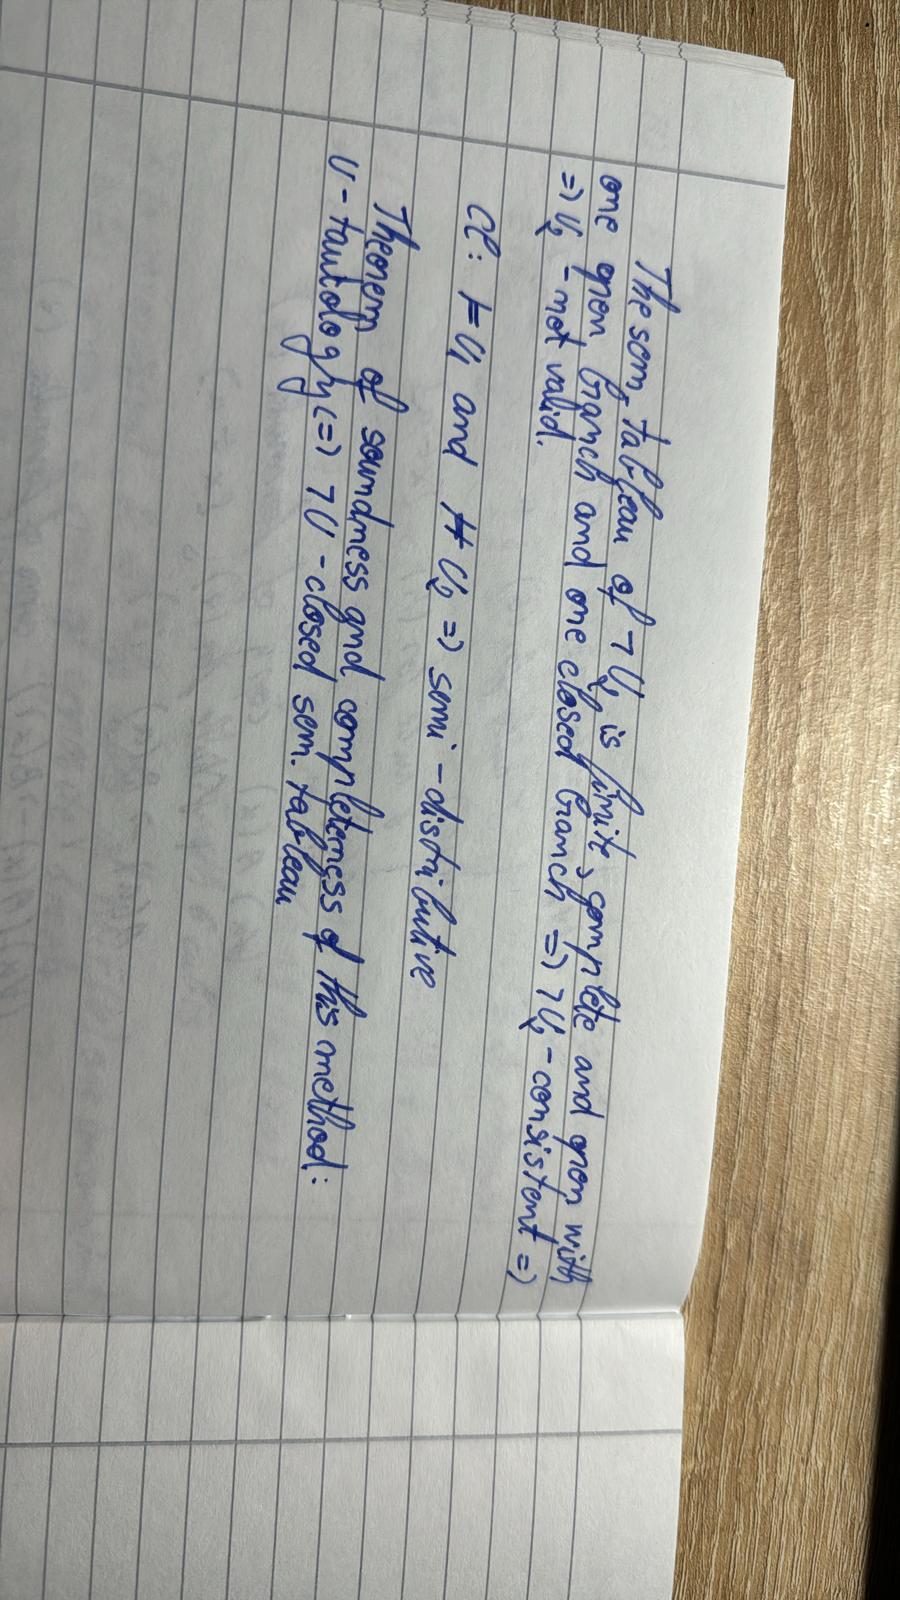 The sem. tableau of ¬U₂ is finite, complete and open with
one open branch and one closed branch => ¬U₂ - consistent =>
=> U₂ - not valid.
Cl: ⊨ U₁ and ⊭ U₂ => semi - distributive
Theorem of soundness and completeness of this method:
U - tautology <=> ¬U - closed sem. tableau